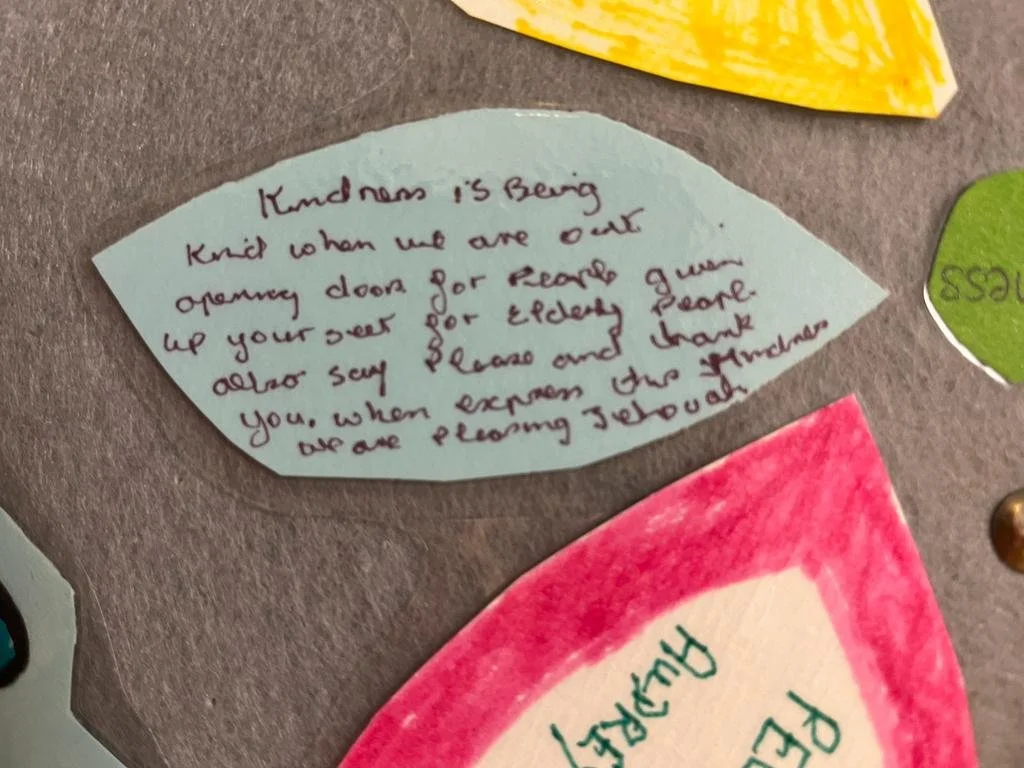 Kindness is Being
Knid when we are out
opening doors for People given
up your seet for Elderly People
also say Please and thank
you. when express this Kindness
we are pleasing Jehovah
ness
AUDREY